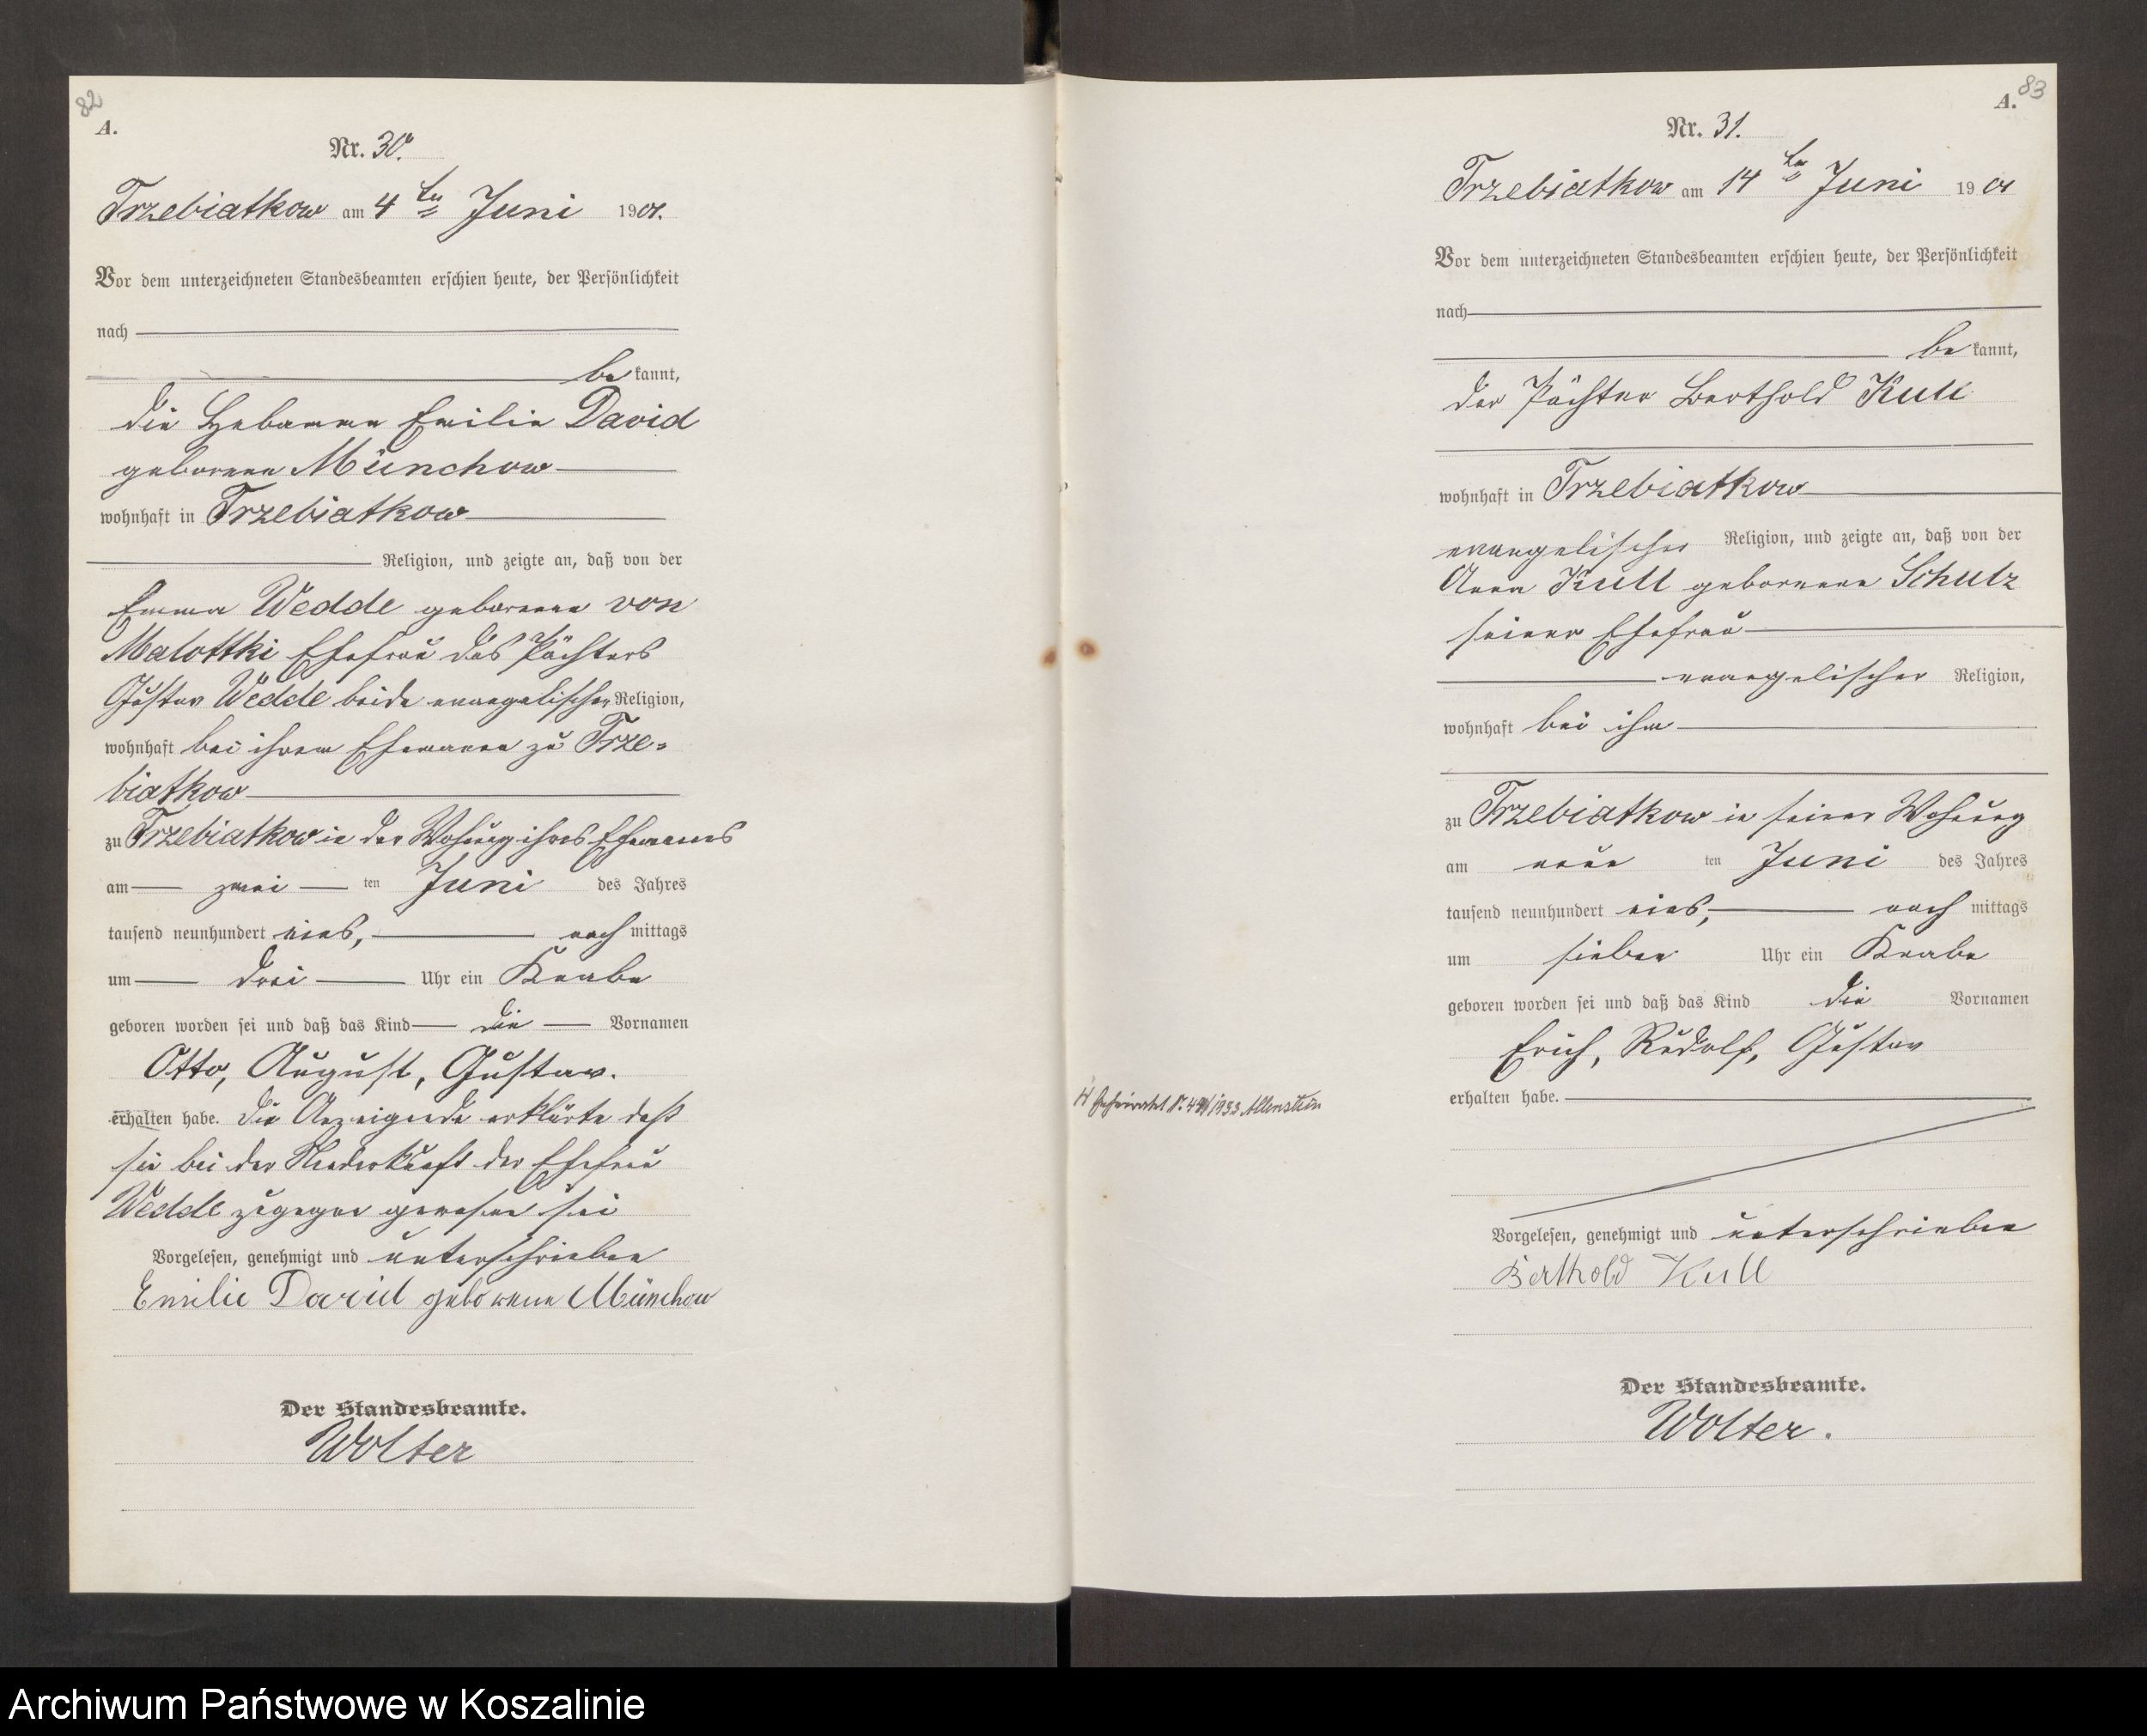 82
A.
Nr. 30.
Trzebiatkow am 4ten Juni 1901.
Vor dem unterzeichneten Standesbeamten erschien heute, der Persönlichkeit
nach
be kannt,
die Hebamme Emilie David
geborene Münchow
wohnhaft in Trzebiatkow
Religion, und zeigte an, daß von der
Emma Wedde geborenen von
Malottki Ehefrau des Pächters
Gustav Wedde beide evangelischer Religion,
wohnhaft bei ihrem Ehemanne zu Trze-
biatkow
zu Trzebiatkow in der Wohnung ihres Ehemannes
am zwei ten Juni des Jahres
tausend neunhundert eins, nach mittags
um drei Uhr ein Knabe
geboren worden sei und daß das Kind die Vornamen
Otto, August, Gustav.
erhalten habe. Die Anzeigende erklärte daß
sie bei der Niederkunft der Ehefrau
Wedde zugegen gewesen sei
Vorgelesen, genehmigt und unterschrieben
Emilie David geborene Münchow
Der Standesbeamte.
Wolter
83
A.
Nr. 31.
Trzebiatkow am 14ten Juni 1901
Vor dem unterzeichneten Standesbeamten erschien heute, der Persönlichkeit
nach
be kannt,
der Pächter Berthold Kull
wohnhaft in Trzebiatkow
evangelischer Religion, und zeigte an, daß von der
Anna Kull geborenen Schulz
seiner Ehefrau
evangelischer Religion,
wohnhaft bei ihm
zu Trzebiatkow in seiner Wohnung
am neun ten Juni des Jahres
tausend neunhundert eins, nach mittags
um sieben Uhr ein Knabe
geboren worden sei und daß das Kind die Vornamen
Erich, Rudolf, Gustav
erhalten habe.
1933 Allenstein
Vorgelesen, genehmigt und unterschrieben
Berthold Kull
Der Standesbeamte.
Wolter.
Archiwum Państwowe w Koszalinie